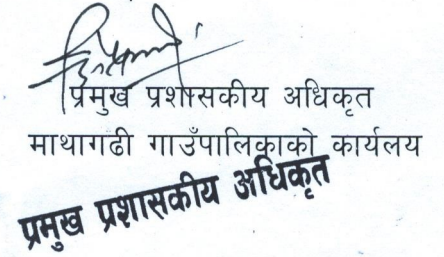 प्रमुख प्रशासकीय अधिकृत
माथागढी गाउँपालिकाको कार्यलय
प्रमुख प्रशासकीय अधिकृत